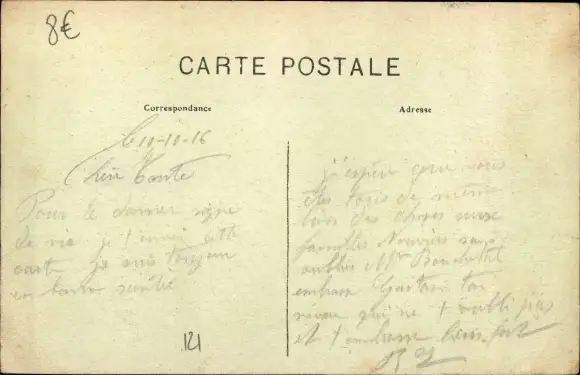 8€
CARTE POSTALE
Correspondance
Adresse
Le 10-10-16
Chère Tante
Pour te donner signe
de vie je t'envoi cette
carte je suis toujours
en bonne santé
j'espère que vous
êtes tous de même
bien des choses aux
familles sans
oublier Mme
embrasse Gaston ton
neveu qui ne t'oubli pas
et t'embrasse bien fort
121